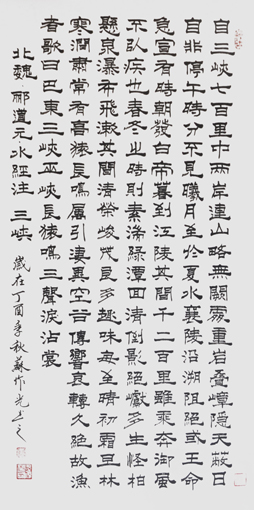 自三峡七百里中兩岸連山略無闕處重岩疊嶂隱天蔽日
自非停午時分不見曦月至於夏水襄陵沿溯阻絕或王命
急宣有時朝發白帝暮到江陵其間千二百里雖乘奔御風
不以疾也春冬之時則素湍綠潭回清倒影絕巘多生怪柏
懸泉瀑布飛漱其間清榮峻茂良多趣味每至晴初霜旦林
寒澗肅常有高猿長鳴屬引淒異空谷傳響哀轉久絕故漁
者歌曰巴東三峡巫峡長猿鳴三聲淚沾裳
北魏酈道元水經注三峡
歲在丁酉季秋蘇作光書